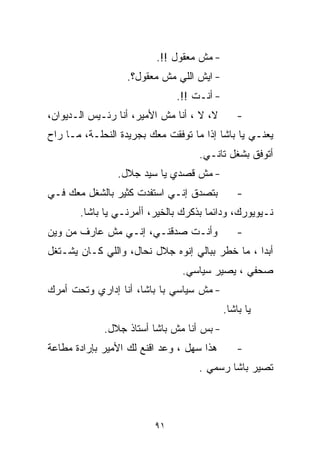 - مش معقول !!.
- ايش اللي مش معقول؟.
- أنـت !!.
- لا، لا ، أنا مش الأمير، أنا رئـيس الـديوان،
يعنـي يا باشا إذا ما توفقت معك بجريدة النحلـة، مـا راح
أتوفق بشغل تانـي.
- مش قصدي يا سيد جلال.
- بتصدق إنـي استفدت كثير بالشغل معك فـي
نـيويورك، ودائما بذكرك بالخير، أأمرنـي يا باشا.
- وأنـت صدقنـي، إنـي مش عارف من وين
أبدا ، ما خطر ببالي إنوه جلال نحال، واللي كـان يشـتغل
صحفي ، يصير سياسي.
- مش سياسي با باشا، أنا إداري وتحت أمرك
يا باشا.
- بس أنا مش باشا أستاذ جلال.
- هذا سهل ، وعد اقنع لك الأمير بإرادة مطاعة
تصير باشا رسمي .
٩١